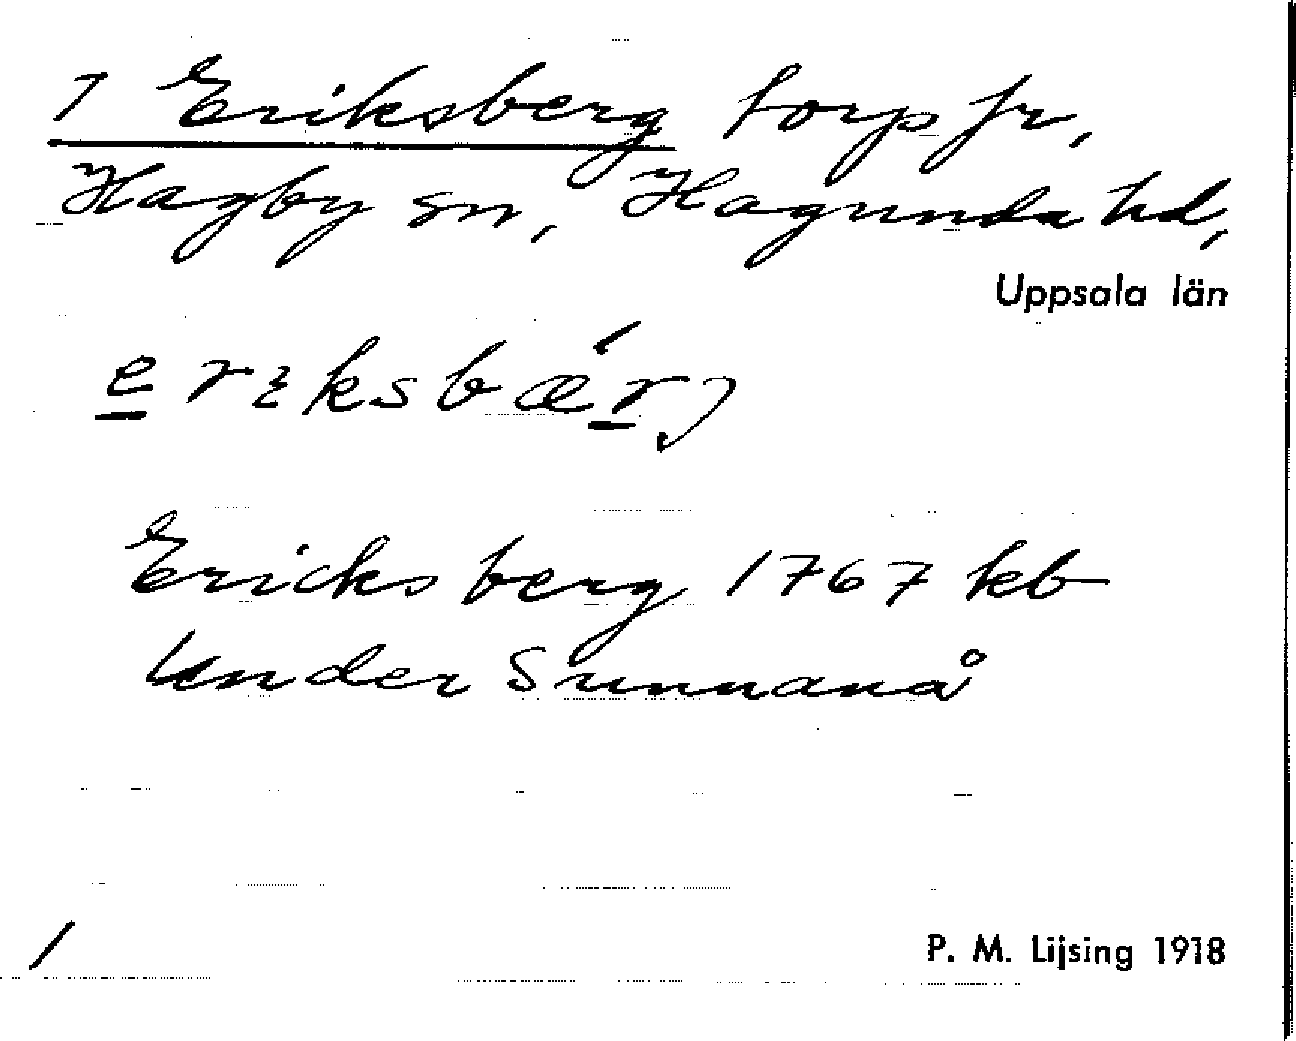 1 Eriksberg torp fr,
Hagby sn, Hagunda hd,
Uppsala län
erɩksbǽrj
Ericksberg 1767 kb
Under Sunnanå
/
P. M. Lijsing 1918